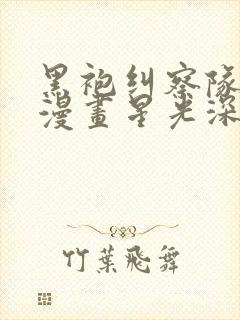 黑袍纠察隊
漫畫星光深
竹葉飛舞